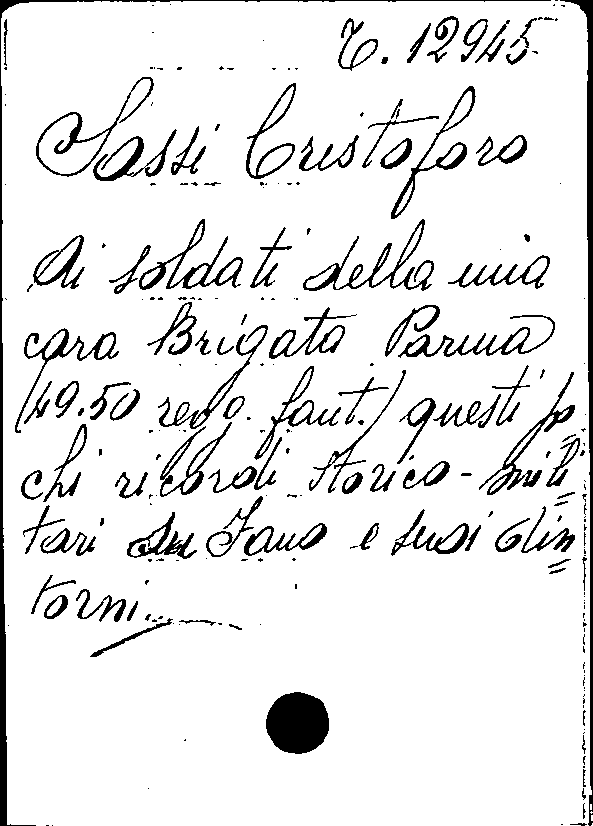 C. 12945
Sassi Cristoforo
Ai soldati della mia
cara Brigata Parma
(49.50 regg. fant.) questi po=
chi ricordi storico-mili=
tari su Fano e suoi din=
torni.